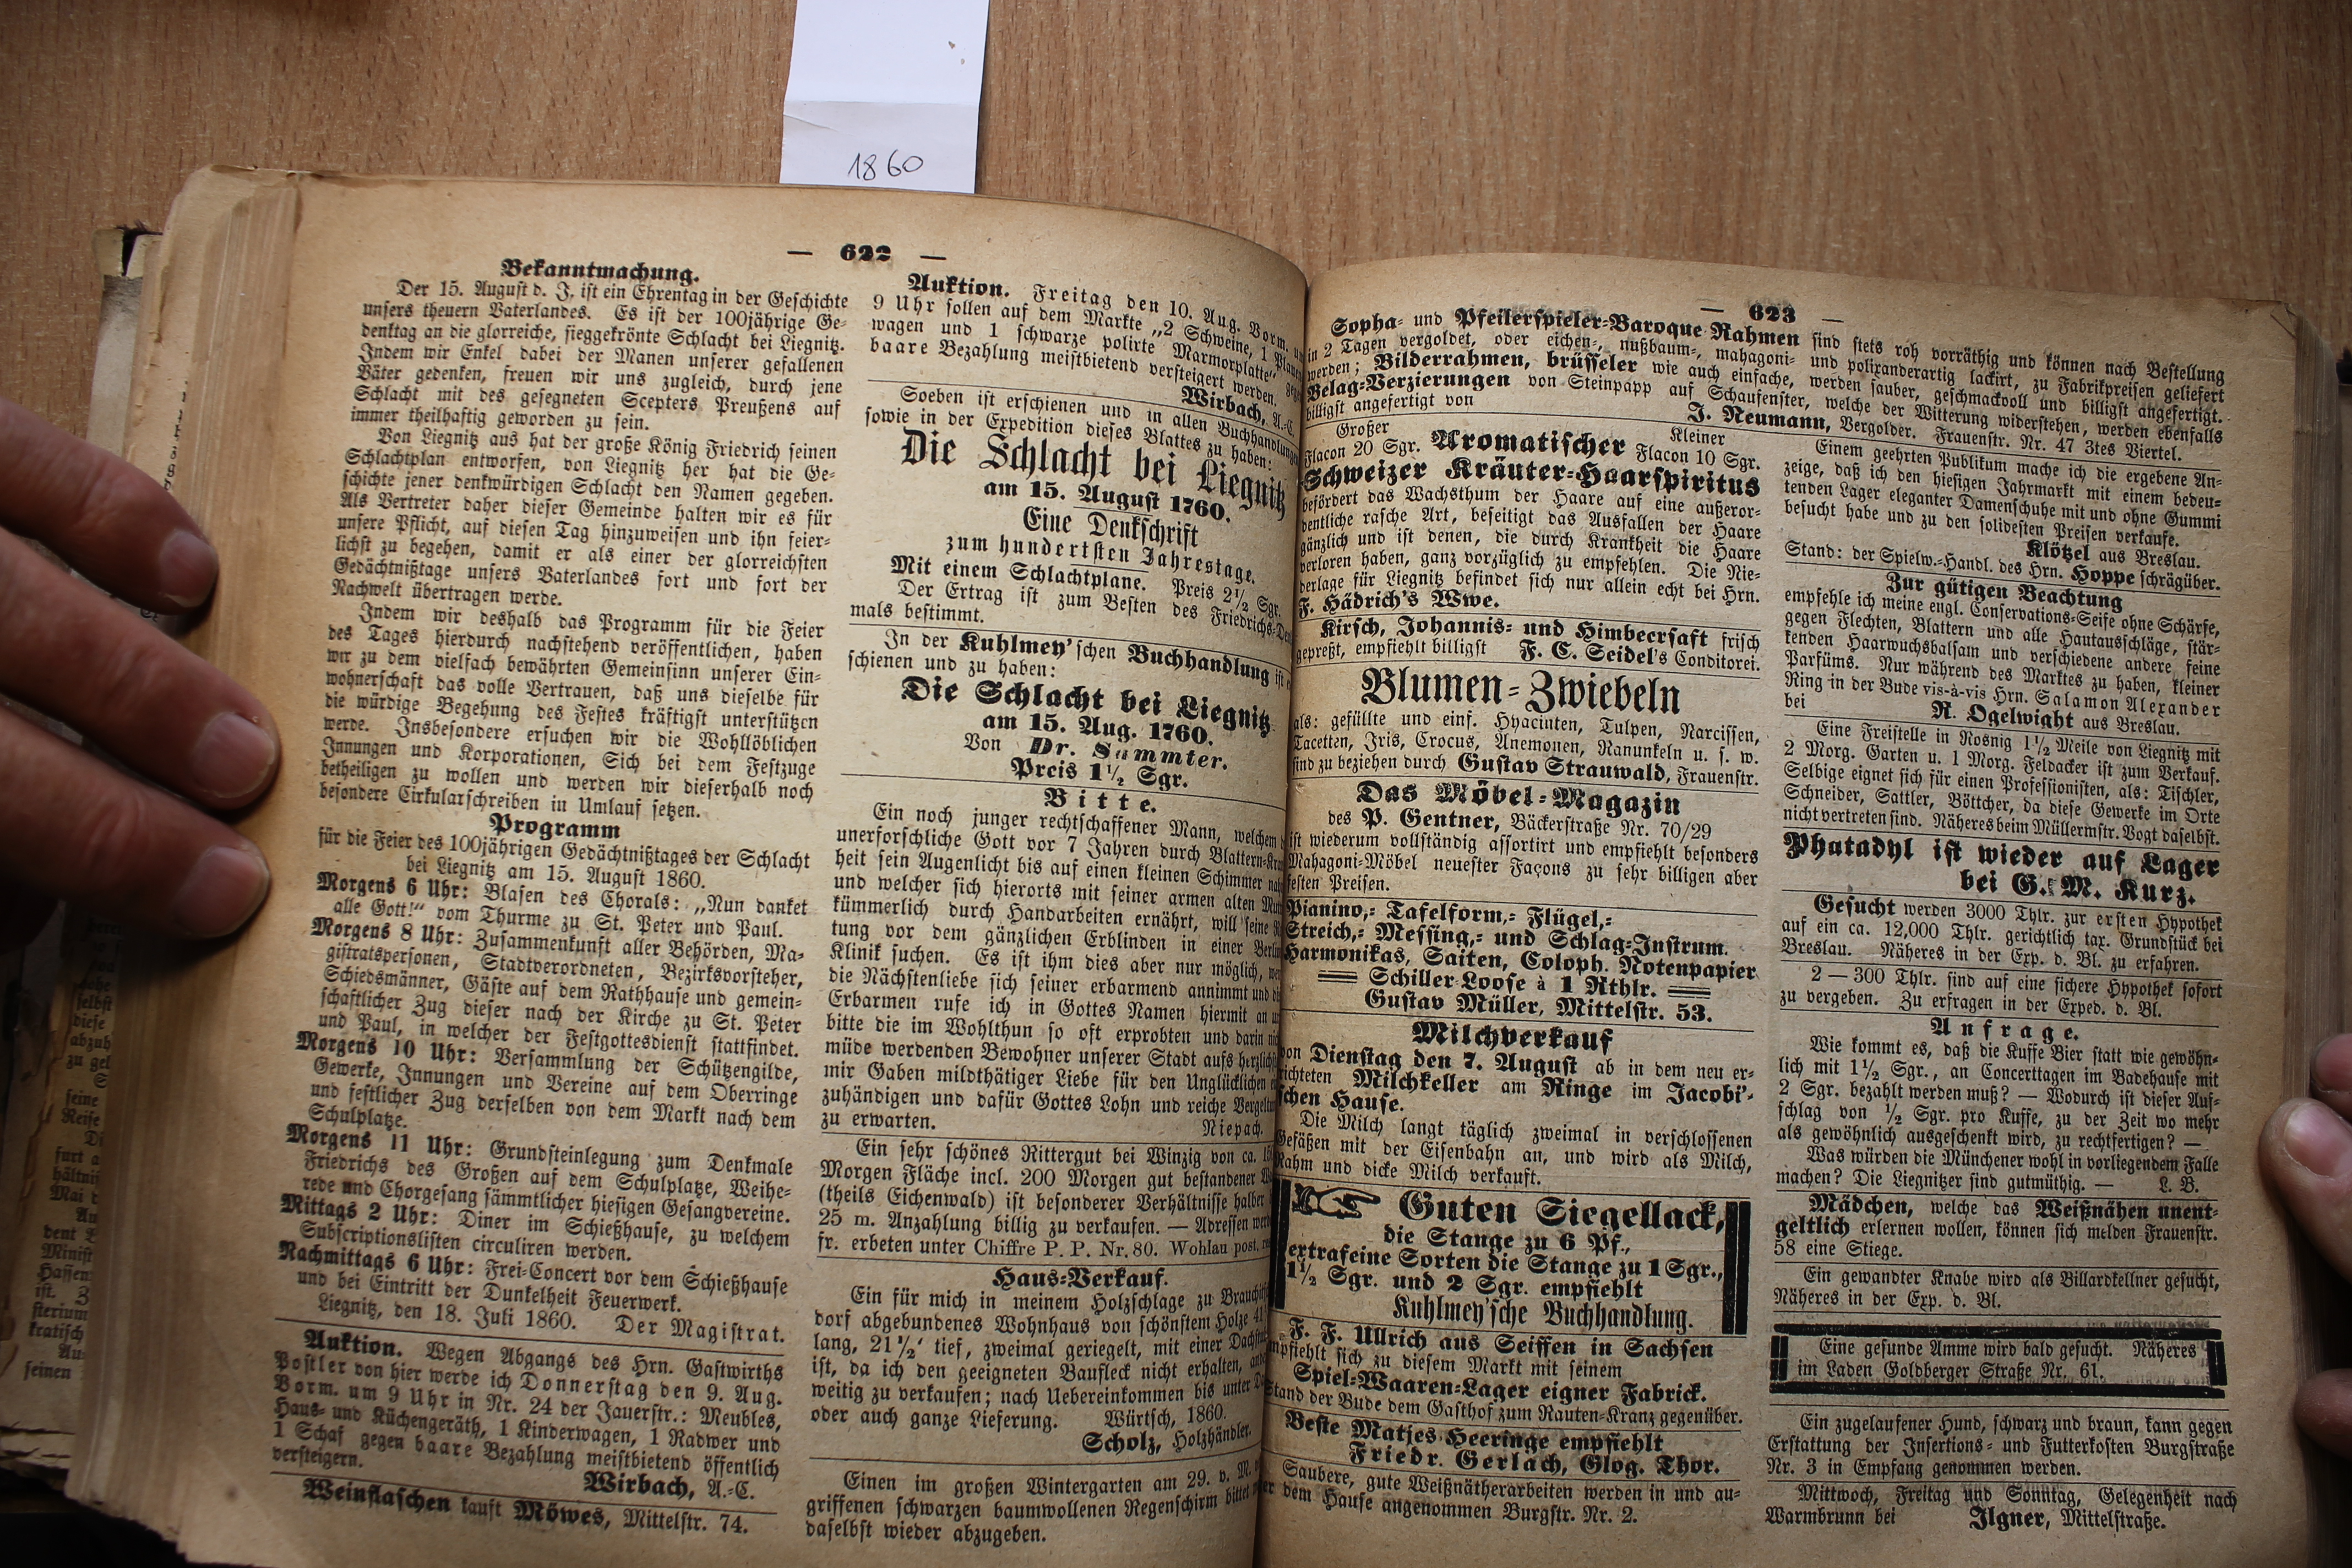 1860
— 622 —
Bekanntmachung.
Der 15. August d. J. ist ein Ehrentag in der Geschichte
unsers theuern Vaterlandes. Es ist der 100jährige Ge-
denktag an die glorreiche, sieggekrönte Schlacht bei Liegnitz.
Indem wir Enkel dabei der Manen unserer gefallenen
Väter gedenken, freuen wir uns zugleich, durch jene
Schlacht mit des gesegneten Scepters Preußens auf
immer theilhaftig geworden zu sein.
Von Liegnitz aus hat der große König Friedrich seinen
Schlachtplan entworfen, von Liegnitz her hat die Ge-
schichte jener denkwürdigen Schlacht den Namen gegeben.
Als Vertreter daher dieser Gemeinde halten wir es für
unsere Pflicht, auf diesen Tag hinzuweisen und ihn feier-
lichst zu begehen, damit er als einer der glorreichsten
Gedächtnißtage unsers Vaterlandes fort und fort der
Nachwelt übertragen werde.
Indem wir deshalb das Programm für die Feier
des Tages hierdurch nachstehend veröffentlichen, haben
wir zu dem vielfach bewährten Gemeinsinn unserer Ein-
wohnerschaft das volle Vertrauen, daß uns dieselbe für
die würdige Begehung des Festes kräftigst unterstützen
werde. Insbesondere ersuchen wir die Wohllöblichen
Innungen und Korporationen, Sich bei dem Festzuge
betheiligen zu wollen und werden wir dieserhalb noch
besondere Cirkularschreiben in Umlauf setzen.
Programm
für die Feier des 100jährigen Gedächtnißtages der Schlacht
bei Liegnitz am 15. August 1860.
Morgens 6 Uhr: Blasen des Chorals: „Nun danket
alle Gott!“ vom Thurme zu St. Peter und Paul.
Morgens 8 Uhr: Zusammenkunft aller Behörden, Ma-
gistratspersonen, Stadtverordneten, Bezirksvorsteher,
Schiedsmänner, Gäste auf dem Rathhause und gemein-
schaftlicher Zug dieser nach der Kirche zu St. Peter
und Paul, in welcher der Festgottesdienst stattfindet.
Morgens 10 Uhr: Versammlung der Schützengilde,
Gewerke, Innungen und Vereine auf dem Oberringe
und festlicher Zug derselben von dem Markt nach dem
Schulplatze.
Morgens 11 Uhr: Grundsteinlegung zum Denkmale
Friedrichs des Großen auf dem Schulplatze, Weihe-
rede und Chorgesang sämmtlicher hiesigen Gesangvereine.
Mittags 2 Uhr: Diner im Schießhause, zu welchem
Subscriptionslisten circuliren werden.
Nachmittags 6 Uhr: Frei-Concert vor dem Schießhause
und bei Eintritt der Dunkelheit Feuerwerk.
Liegnitz, den 18. Juli 1860. Der Magistrat.
Auktion. Wegen Abgangs des Hrn. Gastwirths
Postler von hier werde ich Donnerstag den 9. Aug.
Vorm. um 9 Uhr in Nr. 24 der Jauerstr.: Meubles,
Haus- und Küchengeräth, 1 Kinderwagen, 1 Radwer und
1 Schaf gegen baare Bezahlung meistbietend öffentlich
versteigern. Wirbach, A.-C.
Weinflaschen kauft Möwes, Mittelstr. 74.
Auktion. Freitag den 10. Aug. Vorm.
9 Uhr sollen auf dem Markte „2 Schweine, 1
wagen und 1 schwarze polirte Marmorplatte“,
baare Bezahlung meistbietend versteigert werden.
Wirbach, A.-C.
Soeben ist erschienen und in allen Buchhandlungen
sowie in der Expedition dieses Blattes zu haben:
Die Schlacht bei Liegnitz
am 15. August 1760.
Eine Denkschrift
zum hundertsten Jahrestage.
Mit einem Schlachtplane. Preis 2½ Sgr.
Der Ertrag ist zum Besten des Friedrichs-
mals bestimmt.
In der Kuhlmey'schen Buchhandlung ist
schienen und zu haben:
Die Schlacht bei Liegnitz
am 15. Aug. 1760.
Von Dr. Sammter.
Preis 1½ Sgr.
Bitte.
Ein noch junger rechtschaffener Mann, welchem
unerforschliche Gott vor 7 Jahren durch Blattern-
heit sein Augenlicht bis auf einen kleinen Schimmer
und welcher sich hierorts mit seiner armen alten
kümmerlich durch Handarbeiten ernährt, will seine
tung vor dem gänzlichen Erblinden in einer
Klinik suchen. Es ist ihm dies aber nur möglich,
die Nächstenliebe sich seiner erbarmend annimmt und
Erbarmen rufe ich in Gottes Namen hiermit an
bitte die im Wohlthun so oft erprobten und darin
müde werdenden Bewohner unserer Stadt aufs
mir Gaben mildthätiger Liebe für den Unglücklichen
zuhändigen und dafür Gottes Lohn und reiche
zu erwarten. Niepach.
Ein sehr schönes Rittergut bei Winzig von ca.
Morgen Fläche incl. 200 Morgen gut bestandener
(theils Eichenwald) ist besonderer Verhältnisse halber
25 m. Anzahlung billig zu verkaufen. — Adressen
fr. erbeten unter Chiffre P. P. Nr. 80. Wohlau post.
Haus-Verkauf.
Ein für mich in meinem Holzschlage zu
dorf abgebundenes Wohnhaus von schönstem Holze
lang, 21½' tief, zweimal geriegelt, mit einer
ist, da ich den geeigneten Baufleck nicht erhalten,
weitig zu verkaufen; nach Uebereinkommen bis unter
oder auch ganze Lieferung. Würtsch, 1860.
Scholz, Holzhändler.
Einen im großen Wintergarten am 29. v. M.
griffenen schwarzen baumwollenen Regenschirm bittet
daselbst wieder abzugeben.
— 623 —
Sopha- und Pfeilerspieler-Baroque-Rahmen sind stets roh vorräthig und können nach Bestellung
in 2 Tagen vergoldet, oder eichen-, nußbaum-, mahagoni- und polixanderartig lackirt, zu Fabrikpreisen geliefert
werden; Bilderrahmen, brüsseler wie auch einfache, werden sauber, geschmackvoll und billigst angefertigt.
Belag-Verzierungen von Steinpapp auf Schaufenster, welche der Witterung widerstehen, werden ebenfalls
billigst angefertigt von J. Neumann, Vergolder. Frauenstr. Nr. 47 3tes Viertel.
Großer Flacon 20 Sgr. Aromatischer Kleiner Flacon 10 Sgr.
Schweizer Kräuter-Haarspiritus
befördert das Wachsthum der Haare auf eine außeror-
dentliche rasche Art, beseitigt das Ausfallen der Haare
gänzlich und ist denen, die durch Krankheit die Haare
verloren haben, ganz vorzüglich zu empfehlen. Die Nie-
derlage für Liegnitz befindet sich nur allein echt bei Hrn.
F. Hädrich's Wwe.
Kirsch, Johannis- und Himbeersaft frisch
gepreßt, empfiehlt billigst F. C. Seidel's Conditorei.
Blumen-Zwiebeln
als: gefüllte und einf. Hyacinten, Tulpen, Narcissen,
Tacetten, Iris, Crocus, Anemonen, Ranunkeln u. s. w.
sind zu beziehen durch Gustav Strauwald, Frauenstr.
Das Möbel-Magazin
des P. Gentner, Bäckerstraße Nr. 70/29
ist wiederum vollständig assortirt und empfiehlt besonders
Mahagoni-Möbel neuester Façons zu sehr billigen aber
festen Preisen.
Pianino,- Tafelform,- Flügel,-
Streich,- Messing,- und Schlag-Instrum.
Harmonikas, Saiten, Coloph. Notenpapier
Schiller-Loose à 1 Rthlr.
Gustav Müller, Mittelstr. 53.
Milchverkauf
von Dienstag den 7. August ab in dem neu er-
richteten Milchkeller am Ringe im Jacobi'-
schen Hause.
Die Milch langt täglich zweimal in verschlossenen
Gefäßen mit der Eisenbahn an, und wird als Milch,
Rahm und dicke Milch verkauft.
Guten Siegellack,
die Stange zu 6 Pf.,
extrafeine Sorten die Stange zu 1 Sgr.,
1½ Sgr. und 2 Sgr. empfiehlt
Kuhlmey'sche Buchhandlung.
F. F. Ullrich aus Seiffen in Sachsen
empfiehlt sich zu diesem Markt mit seinem
Spiel-Waaren-Lager eigner Fabrick.
Stand der Bude dem Gasthof zum Rauten-Kranz gegenüber.
Beste Matjes-Heeringe empfiehlt
Friedr. Gerlach, Glog. Thor.
Saubere, gute Weißnätherarbeiten werden in und au-
ßer dem Hause angenommen Burgstr. Nr. 2.
Einem geehrten Publikum mache ich die ergebene An-
zeige, daß ich den hiesigen Jahrmarkt mit einem bedeu-
tenden Lager eleganter Damenschuhe mit und ohne Gummi
besucht habe und zu den solidesten Preisen verkaufe.
Klötzel aus Breslau.
Stand: der Spielw.-Handl. des Hrn. Hoppe schrägüber.
Zur gütigen Beachtung
empfehle ich meine engl. Conservations-Seife ohne Schärfe,
gegen Flechten, Blattern und alle Hautausschläge, stär-
kenden Haarwuchsbalsam und verschiedene andere feine
Parfüms. Nur während des Marktes zu haben, kleiner
Ring in der Bude vis-à-vis Hrn. Salamon Alexander
bei R. Ogelwight aus Breslau.
Eine Freistelle in Rosnig 1½ Meile von Liegnitz mit
2 Morg. Garten u. 1 Morg. Feldacker ist zum Verkauf.
Selbige eignet sich für einen Professionisten, als: Tischler,
Schneider, Sattler, Böttcher, da diese Gewerke im Orte
nicht vertreten sind. Näheres beim Müllermstr. Vogt daselbst.
Phatadyl ist wieder auf Lager
bei G. M. Kurz.
Gesucht werden 3000 Thlr. zur ersten Hypothek
auf ein ca. 12,000 Thlr. gerichtlich tax. Grundstück bei
Breslau. Näheres in der Exp. d. Bl. zu erfahren.
2 — 300 Thlr. sind auf eine sichere Hypothek sofort
zu vergeben. Zu erfragen in der Exped. d. Bl.
Anfrage.
Wie kommt es, daß die Kuffe Bier statt wie gewöhn-
lich mit 1½ Sgr., an Concerttagen im Badehause mit
2 Sgr. bezahlt werden muß? — Wodurch ist dieser Auf-
schlag von ½ Sgr. pro Kuffe, zu der Zeit wo mehr
als gewöhnlich ausgeschenkt wird, zu rechtfertigen? —
Was würden die Münchener wohl in vorliegendem Falle
machen? Die Liegnitzer sind gutmüthig. — L. B.
Mädchen, welche das Weißnähen unent-
geltlich erlernen wollen, können sich melden Frauenstr.
58 eine Stiege.
Ein gewandter Knabe wird als Billardkellner gesucht,
Näheres in der Exp. d. Bl.
Eine gesunde Amme wird bald gesucht. Näheres
im Laden Goldberger Straße Nr. 61.
Ein zugelaufener Hund, schwarz und braun, kann gegen
Erstattung der Insertions- und Futterkosten Burgstraße
Nr. 3 in Empfang genommen werden.
Mittwoch, Freitag und Sonntag, Gelegenheit nach
Warmbrunn bei Ilgner, Mittelstraße.